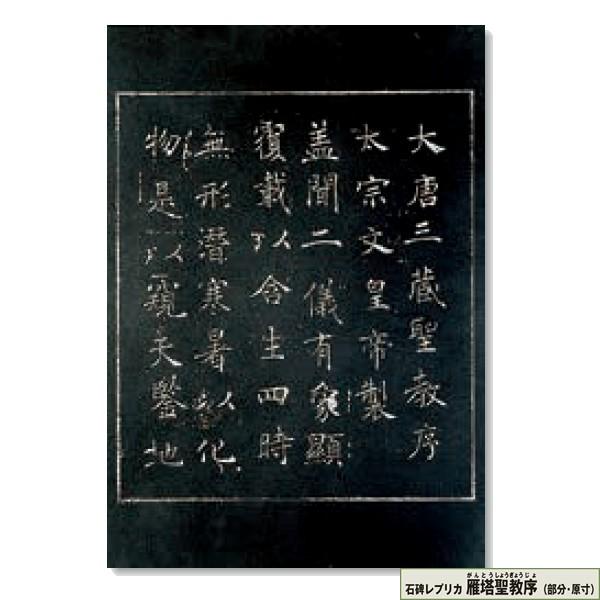 大唐三藏聖教序
太宗文皇帝製
盖聞二儀有象顯
覆載以含生四時
無形潛寒暑以化
物是以窺天鑒地
石碑レプリカ 雁塔聖教序 (部分・原寸)
がんとうしょうぎょうじょ